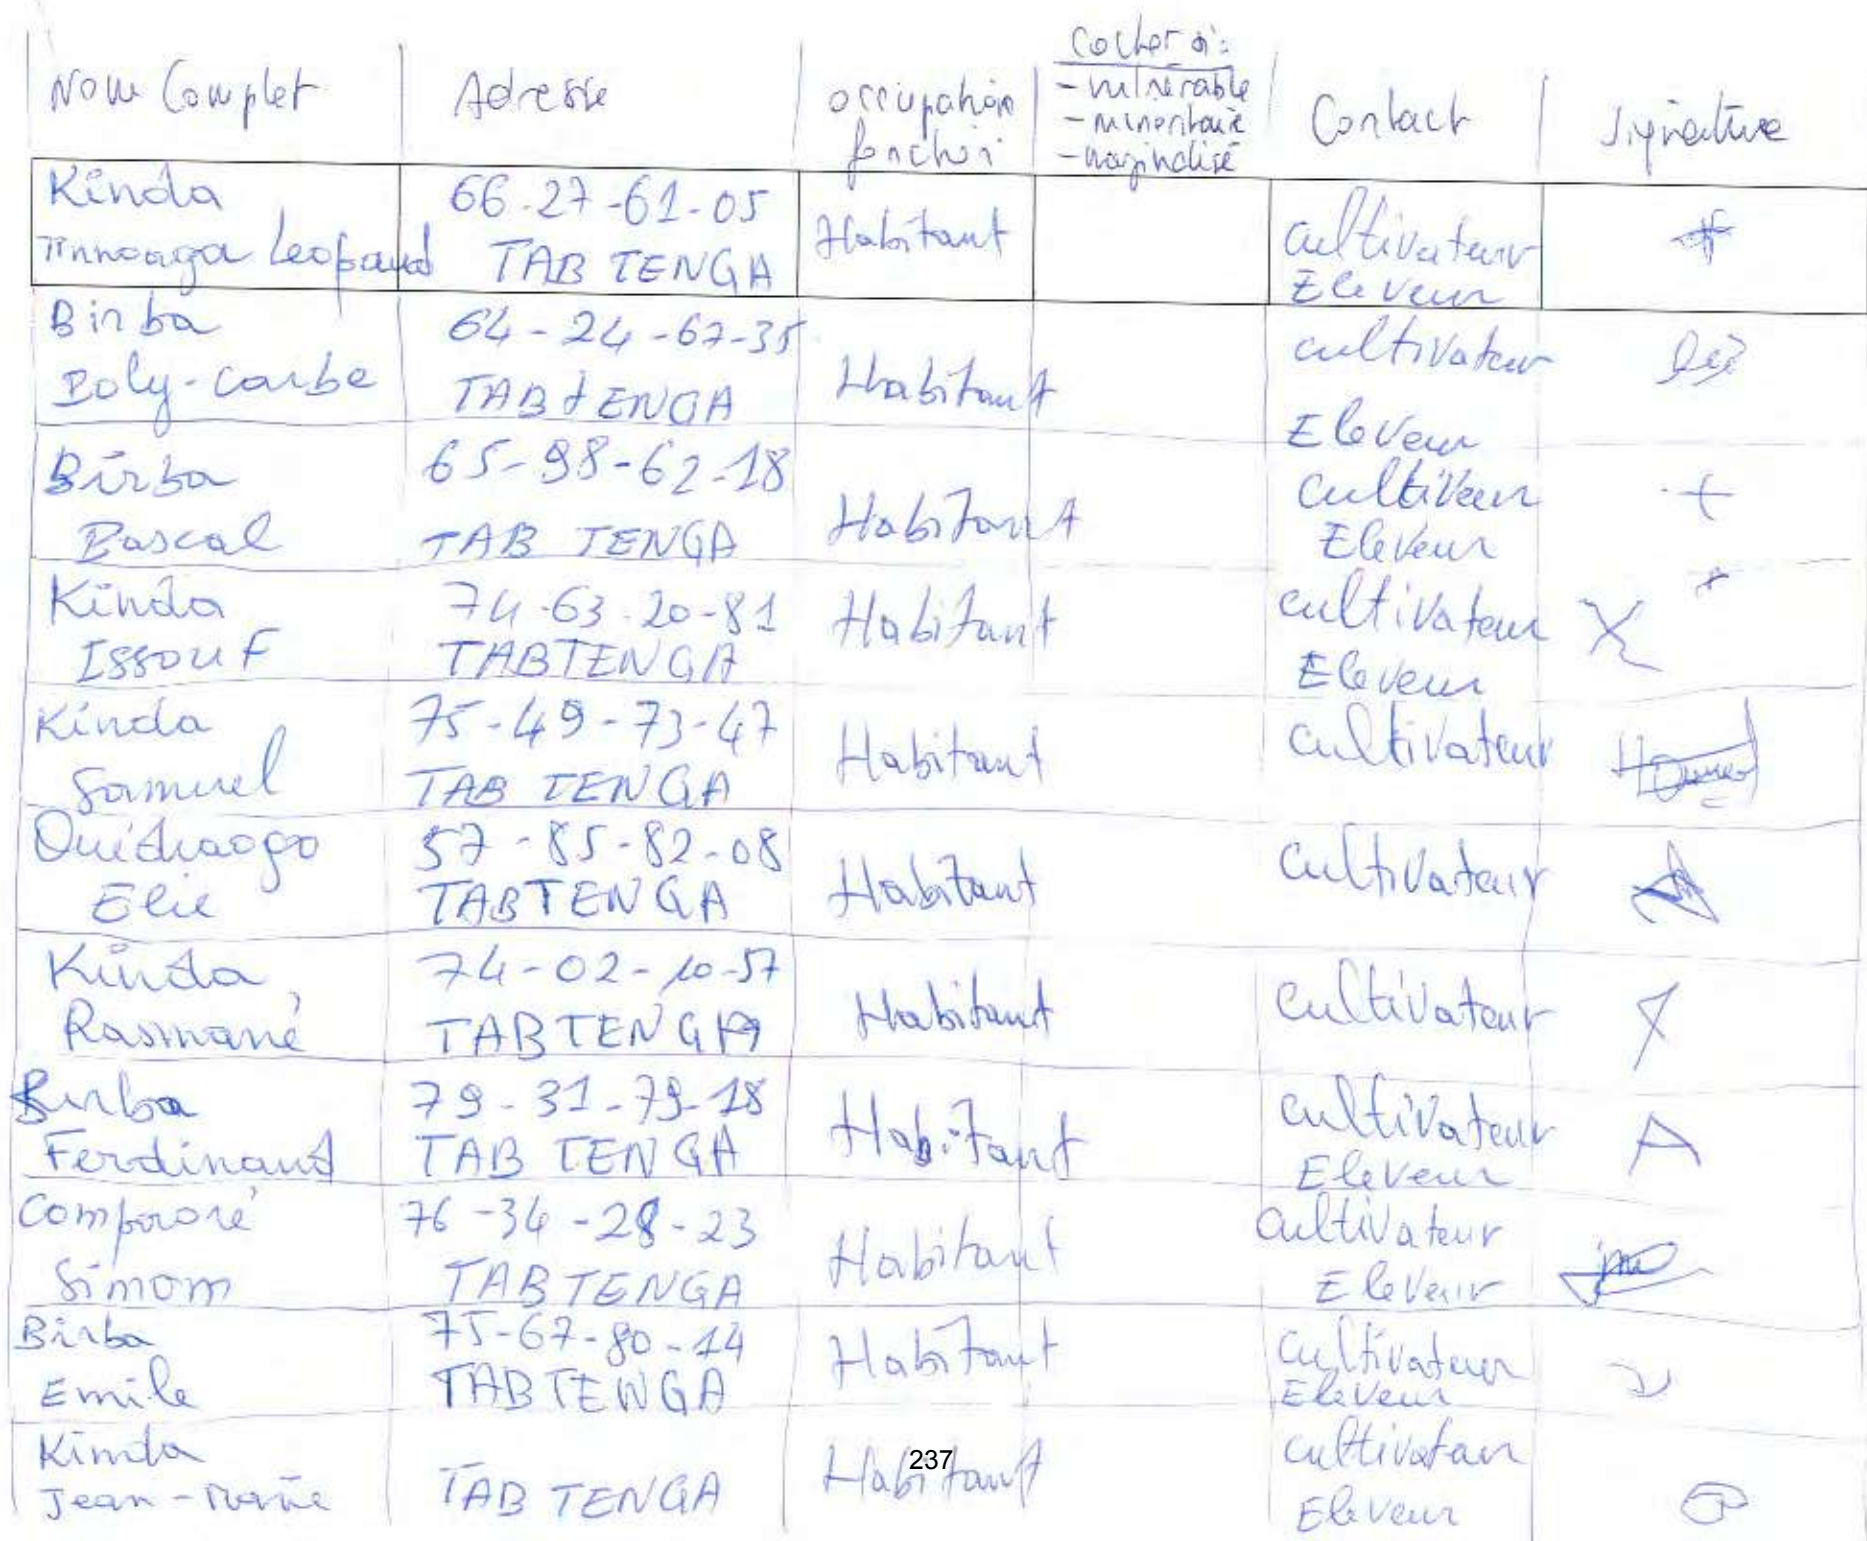 Nom Complet
Adresse
occupation
fonction
Cocher si:
- vulnérable
- minoritaire
- marginalisé
Contact
Signature
Kinda
Léopaud
66-27-61-05
TAB TENGA
Habitant
cultivateur
Eleveur
Birba
Poly-carbe
64-24-67-35
TAB tENGA
Habitant
cultivateur
Eleveur
Birba
Pascal
65-98-62-18
TAB TENGA
Habitant
cultiveur
Eleveur
Kinda
ISSOUF
74-63-20-81
TABTENGA
Habitant
cultivateur
Eleveur
Kinda
Samuel
75-49-73-47
TAB TENGA
Habitant
cultivateur
Ouédraogo
Elie
57-85-82-08
TABTENGA
Habitant
cultivateur
Kinda
Rasmané
74-02-10-57
TABTENGA
Habitant
cultivateur
Birba
Ferdinand
79-31-79-18
TAB TENGA
Habitant
cultivateur
Eleveur
Compaoré
Simom
76-34-28-23
TAB TENGA
Habitant
cultivateur
Eleveur
Birba
Emile
75-67-80-14
TABTENGA
Habitant
cultivateur
Eleveur
Kinda
Jean-Marie
TAB TENGA
Habitant
cultivateur
Eleveur
237